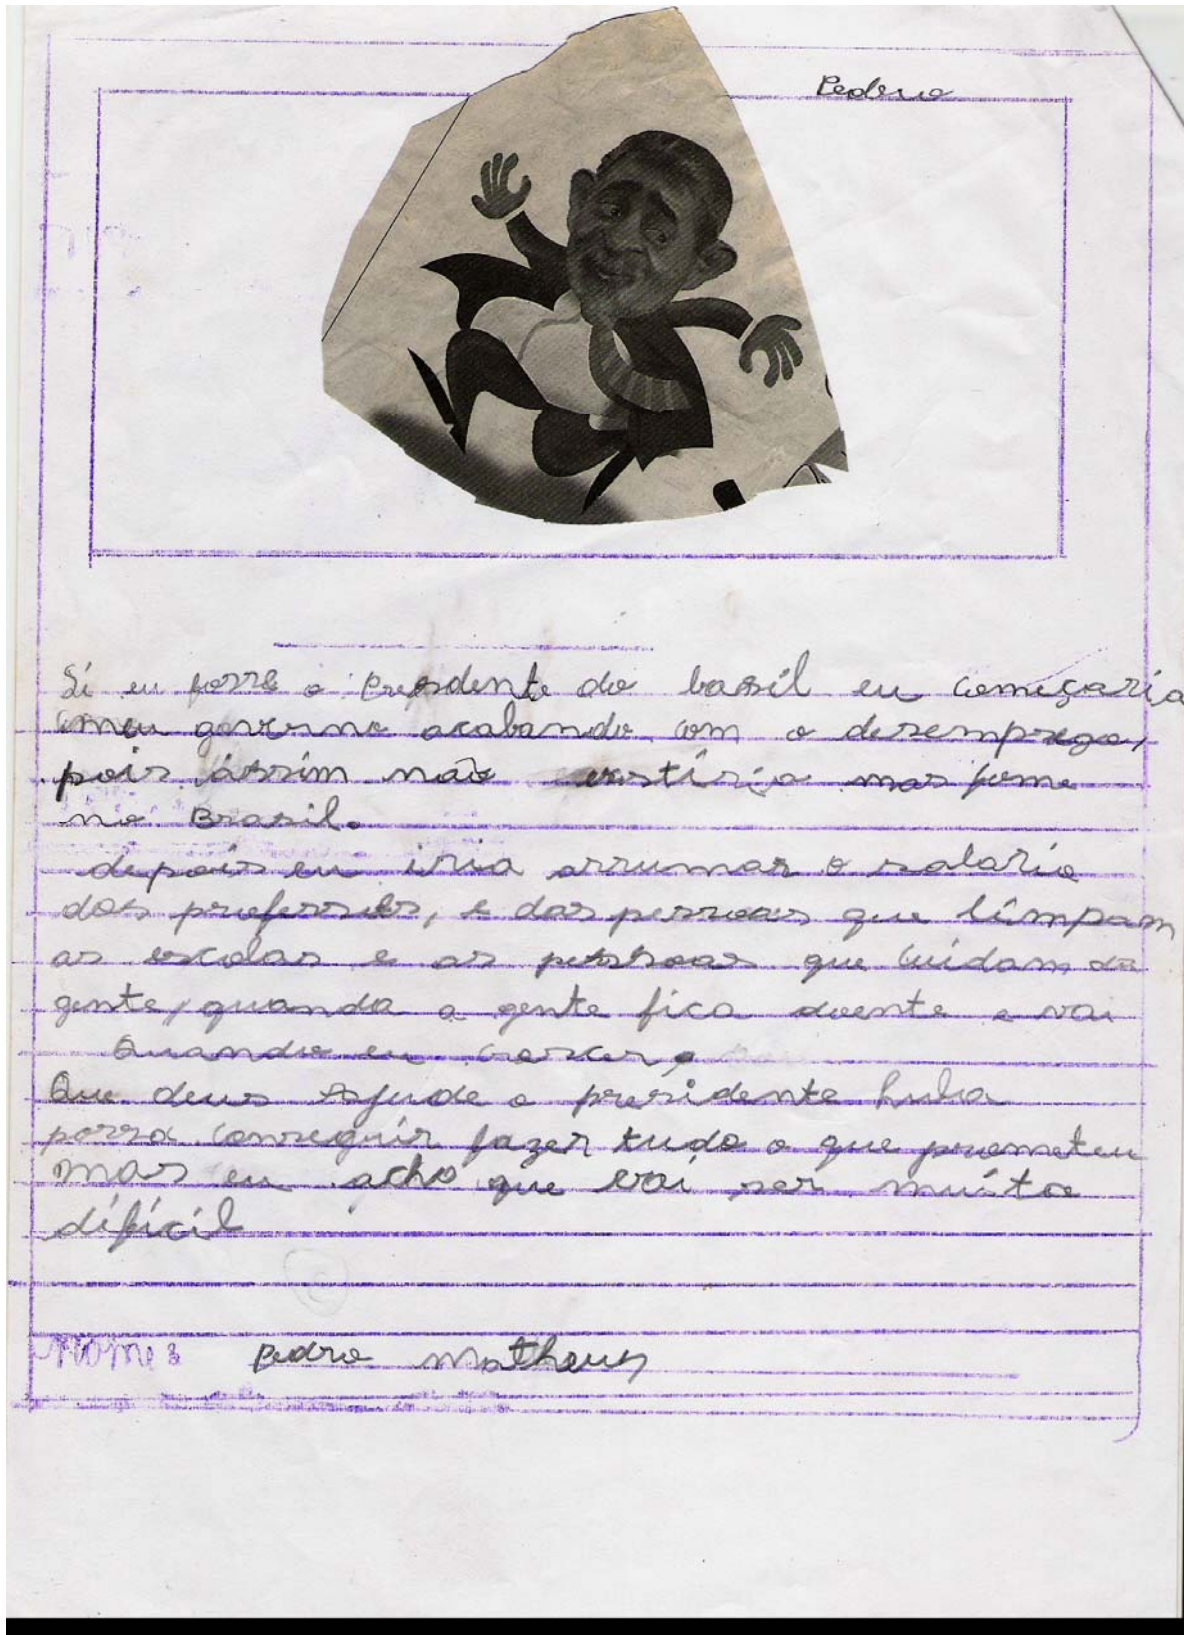 Pedro
Si eu forre o Presdente do basil eu começaria
meu governo acabando com o desemprego,
pois assim não existiria mas fome
no Brasil.
depois eu iria arrumar o salario
dos professores, e das pessoas que limpam
as escolas e as pessoas que cuidam da
gente, quando a gente fica doente e vai
Quando eu crescer,
Que deus Ajude o presidente Lula
parra conseguir fazer tudo o que prometeu
mas eu acho que vai ser muito
dificil
Nome:
Pedro Matheus